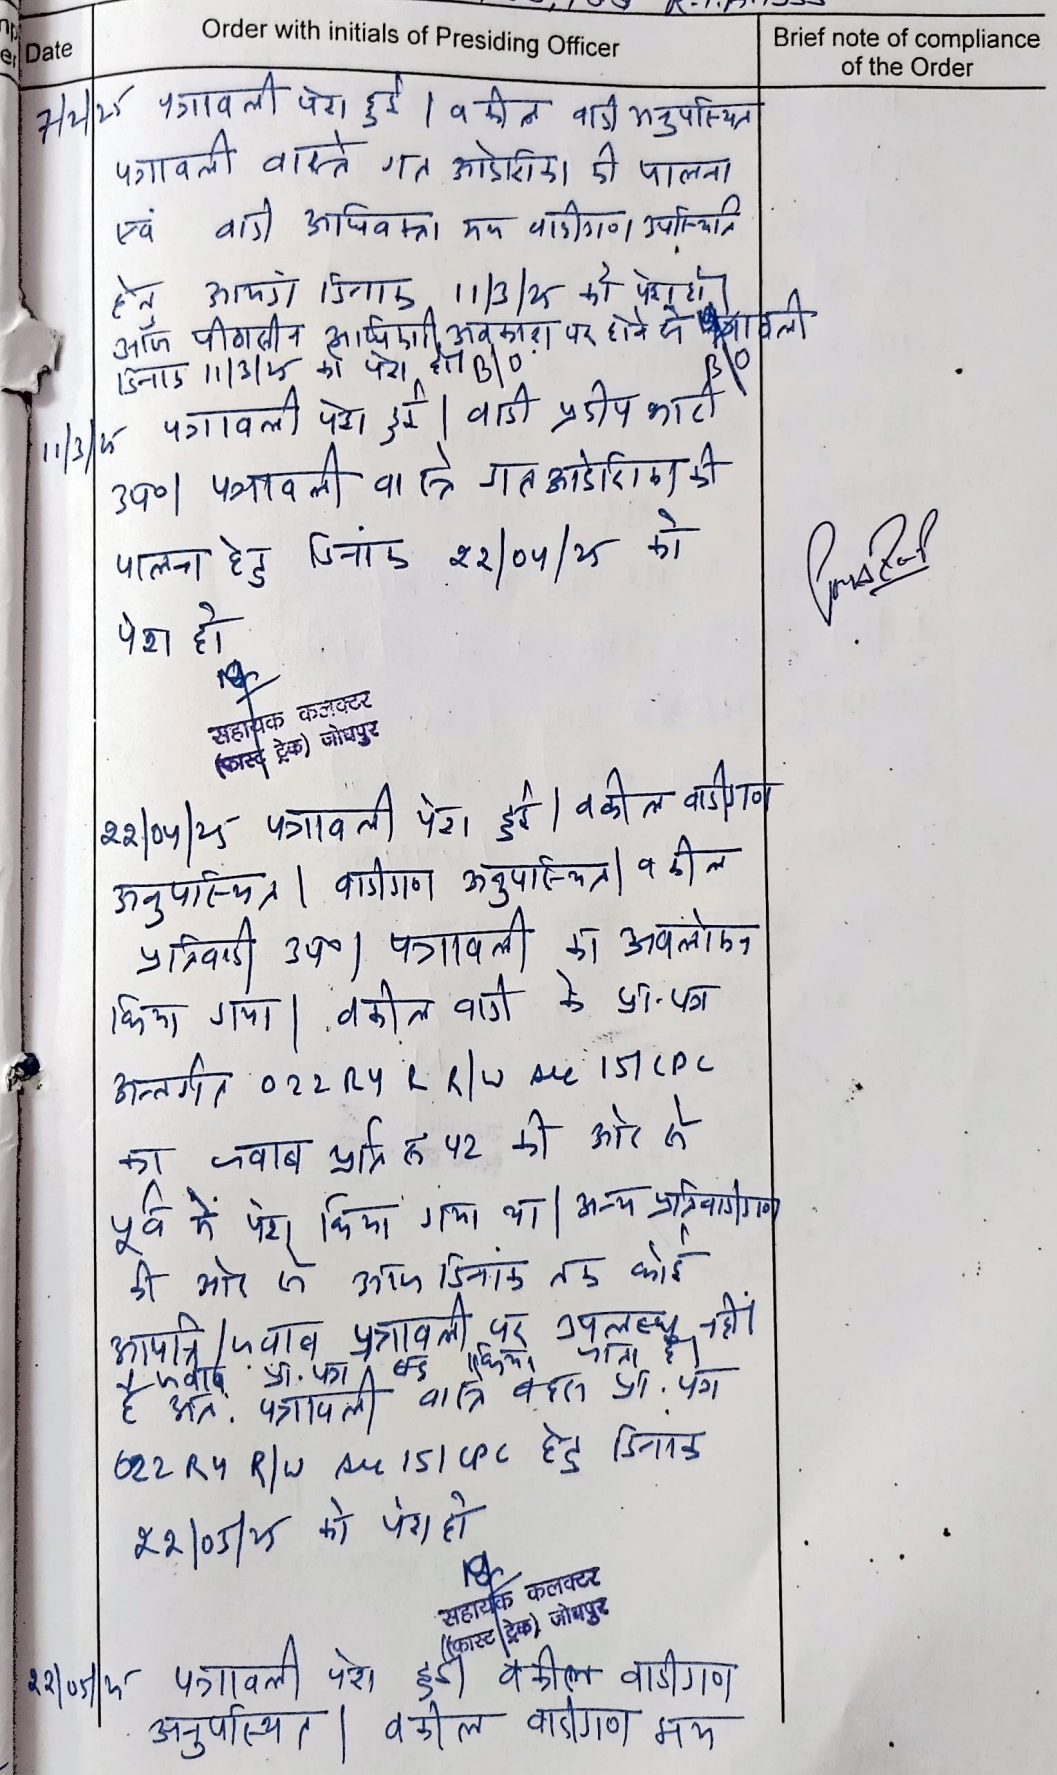 Date
Order with initials of Presiding Officer
Brief note of compliance
of the Order
7/2/25 पत्रावली पेश हुई । वकील वादी अनुपस्थित
पत्रावली वास्ते गत आदेशिका की पालना
एवं वादी अधिवक्ता मय वादीगण उपस्थिति
हेतु आगामी दिनांक 11/3/25 को पेश हो।
आज पीठासीन अधिकारी अवकाश पर होने से पत्रावली
दिनांक 11/3/25 को पेश हो। B/O B/O
11/3/25 पत्रावली पेश हुई । वादी प्रदीप भाटी
उप०। पत्रावली वास्ते गत आदेशिका की
पालना हेतु दिनांक 22/04/25 को
पेश हो
सहायक कलक्टर
(फास्ट ट्रेक) जोधपुर
22/04/25 पत्रावली पेश हुई । वकील वादीगण
अनुपस्थित । वादीगण अनुपस्थित । वकील
प्रतिवादी उप०। पत्रावली का अवलोकन
किया गया । वकील वादी के प्रा.पत्र
अन्तर्गत 022 R4 R/W Sec 151 CPC
का जवाब प्रति सं 42 की ओर से
पूर्व में पेश किया गया था । अन्य प्रतिवादीगण
की ओर से आज दिनांक तक कोई
आपत्ति/जवाब पत्रावली पर उपलब्ध नहीं
है जवाब प्रा.पत्र बंद किया जाता है।
अत: पत्रावली वास्ते बहस प्रा.पत्र
022 R4 R/W Sec 151 CPC हेतु दिनांक
22/05/25 को पेश हो
सहायक कलक्टर
(फास्ट ट्रेक) जोधपुर
22/05/25 पत्रावली पेश हुई। वकील वादीगण
अनुपस्थित । वकील वादीगण मय